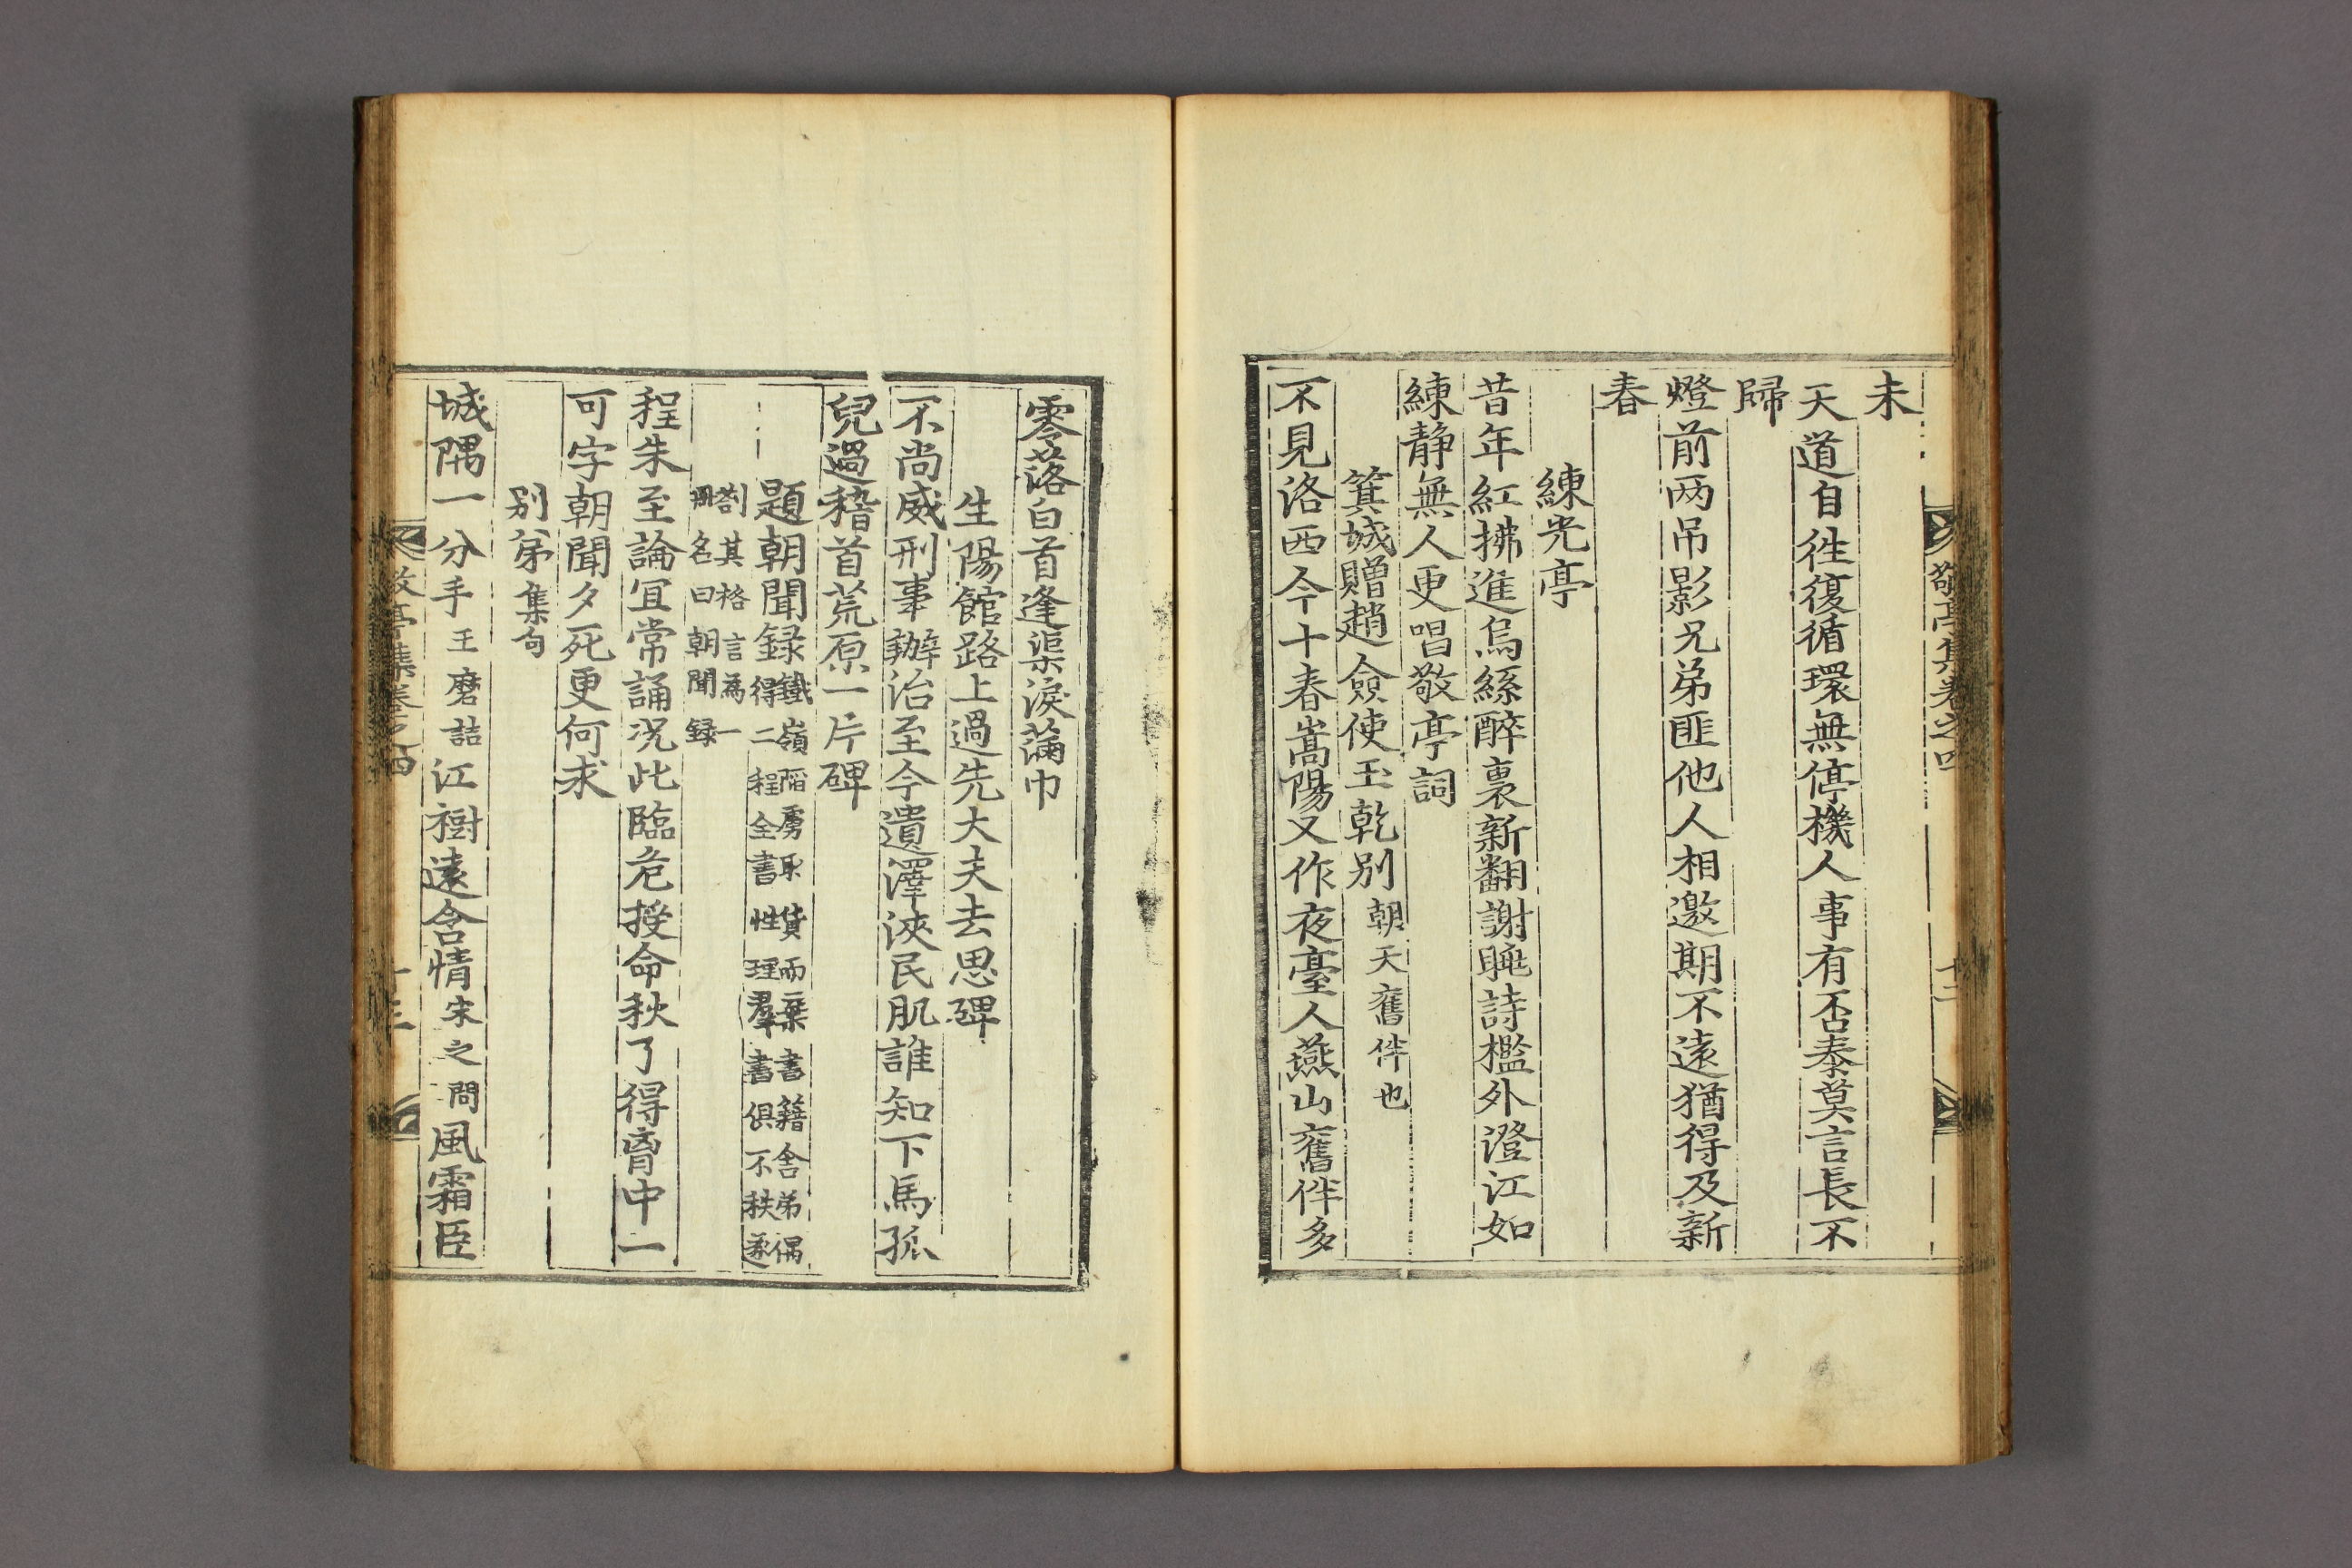 敬亭集卷之四
十二
未
天道自徃復循環無停機人事有否泰莫言長不
歸
燈前兩吊影兄弟匪他人相邀期不遠猶得及新
春
練光亭
昔年紅拂進烏絲醉裏新翻謝朓詩檻外澄江如
練静無人更唱敬亭詞
箕城贈趙僉使玉乾别 朝天舊伴也
不見洛西今十春嵩陽又作夜臺人燕山舊伴多
零落白首逢渠淚滿巾
生陽館路上過先大夫去思碑
不尚威刑事辦治至今遺澤浹民肌誰知下馬孤
兒過稽首荒原一片碑
題朝聞録 鐵嶺陷虜取貨而棄書籍舍弟偶
得二程全書性理羣書俱不秩遂
劄其格言為一
冊名曰朝聞録
程朱至論冝常誦况此臨危授命秋了得胷中一
可字朝聞夕死更何求
别弟集句
城隅一分手 王摩詰 江樹遠含情 宋之問 風霜臣
敬亭集卷之四
十三